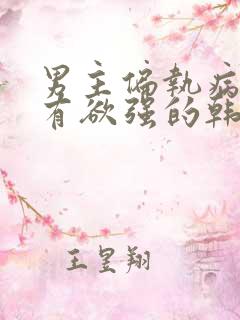 男主偏执病
有欲强的韩
王皇翔